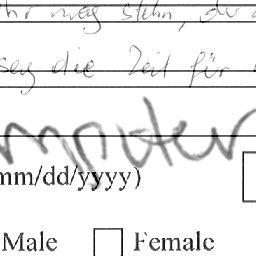 mag
die Zeit für
mputer
mm/dd/yyyy)
Male Female